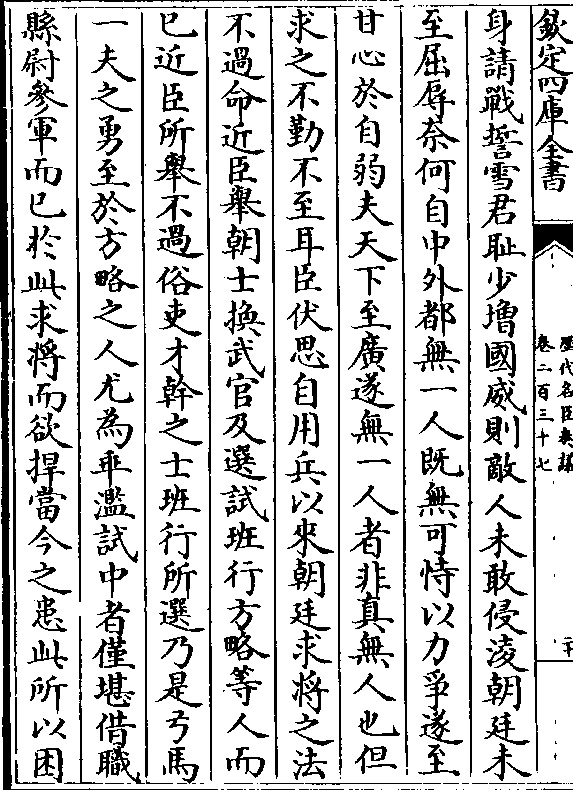 欽定四庫全書
歷代名臣奏議
卷二百三十七
二十
身請戰誓雪君耻少増國威則敵人未敢侵淩朝廷未
至屈辱奈何自中外都無一人既無可恃以力爭遂至
甘心於自弱夫天下至廣遂無一人者非真無人也但
求之不勤不至耳臣伏思自用兵以來朝廷求將之法
不過命近臣舉朝士換武官及選試班行方略等人而
已近臣所舉不過俗吏才幹之士班行所選乃是弓馬
一夫之勇至於方略之人尤為乖濫試中者僅堪借職
縣尉參軍而已於此求將而欲捍當今之患此所以困